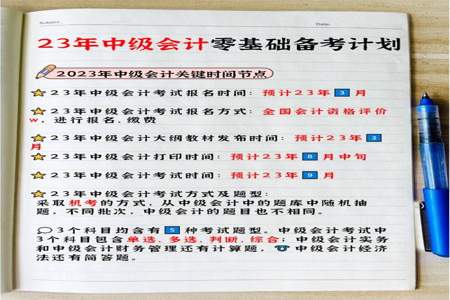 23年中级会计零基础备考计划
2023年中级会计关键时间节点
23年中级会计考试报名时间：预计23年3月
23年中级会计考试报名方式：全国会计资格评价
w，进行报名、缴费
23年中级会计大纲教材发布时间：预计23年3
月
23年中级会计打印时间：预计23年8月中旬
23年中级会计考试时间：预计23年9月
23年中级会计考试方式及题型：
采取机考的方式，从中级会计中的题库中随机抽
题，不同批次，中级会计的题目也不相同。
3个科目均含有5种考试题型。中级会计考试中
3个科目包含单选、多选、判断、综合；中级会计实务
和中级会计财务管理还有计算题，中级会计经济
法还有简答题。